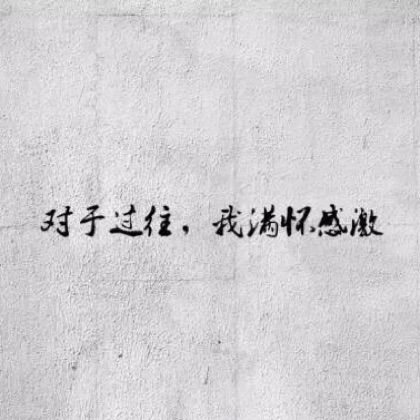 对于过往，我满怀感激